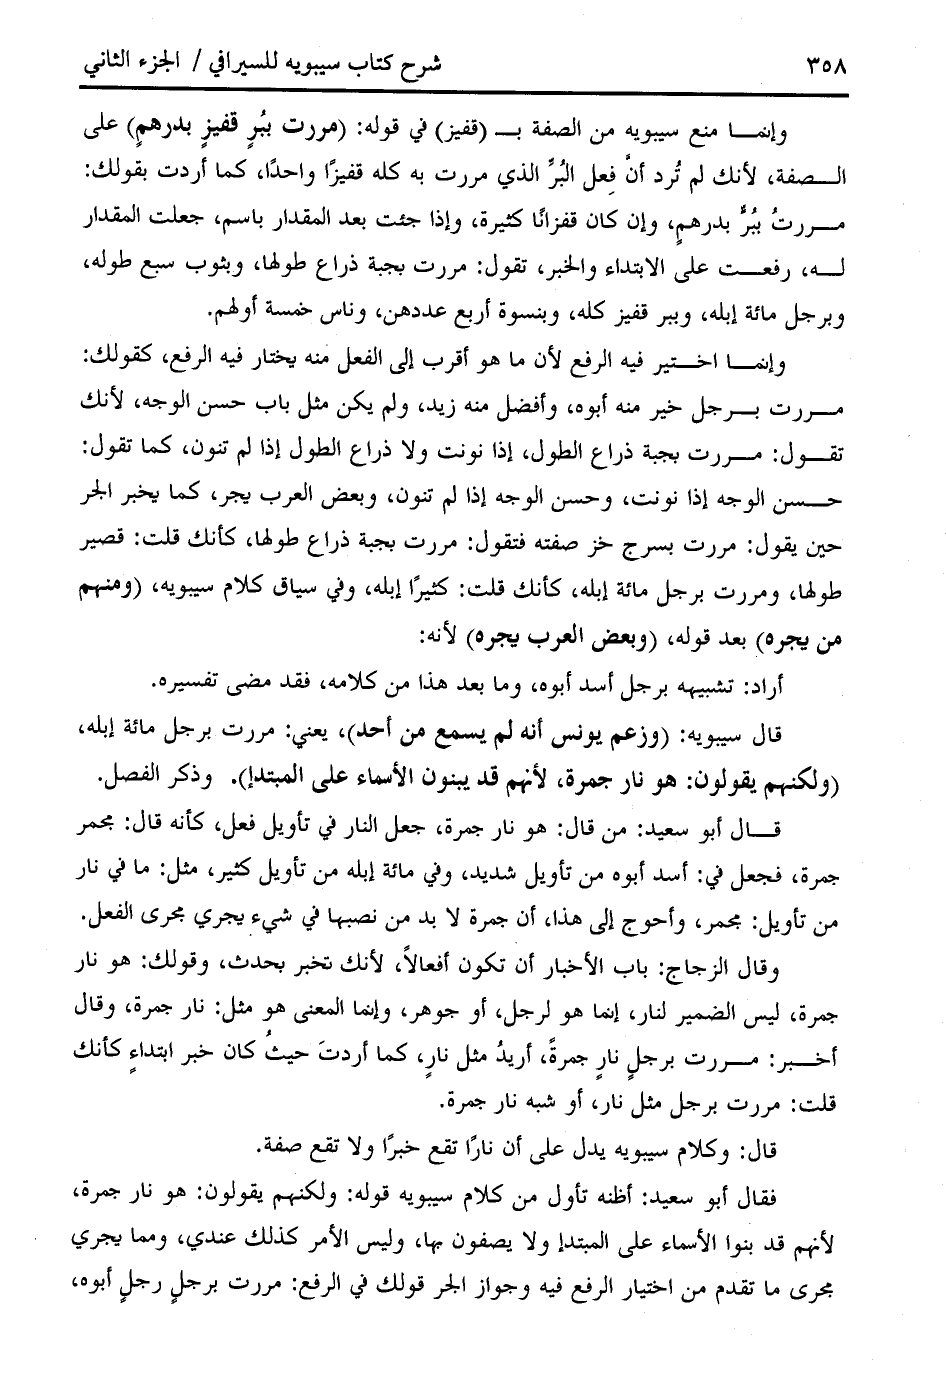 ٣٥٨ شرح كتاب سيبويه للسيرافي / الجزء الثاني
وإنمـــا منع سيبويه من الصفة بــ (قفيز) في قوله: (مررت ببُرٍ قفيزٍ بدرهمٍ) على
الـــصفة، لأنك لم تُرد أنَّ فِعل البُرِّ الذي مررت به كله قفيزًا واحدًا، كما أردت بقولك:
مـــررتُ ببُرٍّ بدرهمٍ، وإن كان قفزانًا كثيرة، وإذا جئت بعد المقدار باسم، جعلت المقدار
لـــه، رفعـــت على الابتداء والخبر، تقول: مررت بجبة ذراع طولها، وبثوب سبع طوله،
وبرجل مائة إبله، وببر قفيز كله، وبنسوة أربع عددهن، وناس خمسة أولهم.
وإنمـــا اخـــتير فيه الرفع لأن ما هو أقرب إلى الفعل منه يختار فيه الرفع، كقولك:
مـــررت بـــرجل خير منه أبوه، وأفضل منه زيد، ولم يكن مثل باب حسن الوجه، لأنك
تقـــول: مـــررت بجبة ذراع الطول، إذا نونت ولا ذراع الطول إذا لم تنون، كما تقول:
حـــسن الوجه إذا نونت، وحسن الوجه إذا لم تنون، وبعض العرب يجر، كما يخبر الجر
حين يقول: مررت بسرج خز صفته فتقول: مررت بجبة ذراع طولها، كأنك قلت: قصير
طولها، ومررت برجل مائة إبله، كأنك قلت: كثيرًا إبله، وفي سياق كلام سيبويه، (ومنهم
من يجره) بعد قوله، (وبعض العرب يجره) لأنه:
أراد: تشبيهه برجل أسد أبوه، وما بعد هذا من كلامه، فقد مضى تفسيره.
قال سيبويه: (وزعم يونس أنه لم يسمع من أحد)، يعني: مررت برجل مائة إبله،
(ولكنهم يقولون: هو نار جمرة، لأنهم قد يبنون الأسماء على المبتدإ). وذكر الفصل.
قـــال أبو سعيد: من قال: هو نار جمرة، جعل النار في تأويل فعل، كأنه قال: محمر
جمرة، فجعل في: أسد أبوه من تأويل شديد، وفي مائة إبله من تأويل كثير، مثل: ما في نار
من تأويل: محمر، وأحوج إلى هذا، أن جمرة لا بد من نصبها في شيء يجري مجرى الفعل.
وقال الزجاج: باب الأخبار أن تكون أفعالاً، لأنك تخبر بحدث، وقولك: هو نار
جمرة، ليس الضمير لنار، إنما هو لرجل، أو جوهر، وإنما المعنى هو مثل: نار جمرة، وقال
أخـــبر: مـــررت برجلٍ نارٍ جمرةً، أريدُ مثل نارٍ، كما أردتَ حيثُ كان خبر ابتداءٍ كأنك
قلت: مررت برجل مثل نار، أو شبه نار جمرة.
قال: وكلام سيبويه يدل على أن نارًا تقع خبرًا ولا تقع صفة.
فقال أبو سعيد: أظنه تأول من كلام سيبويه قوله: ولكنهم يقولون: هو نار جمرة،
لأنهم قد بنوا الأسماء على المبتدإ ولا يصفون بها، وليس الأمر كذلك عندي، ومما يجري
مجرى ما تقدم من اختيار الرفع فيه وجواز الجر قولك في الرفع: مررت برجلٍ رجلٍ أبوه،